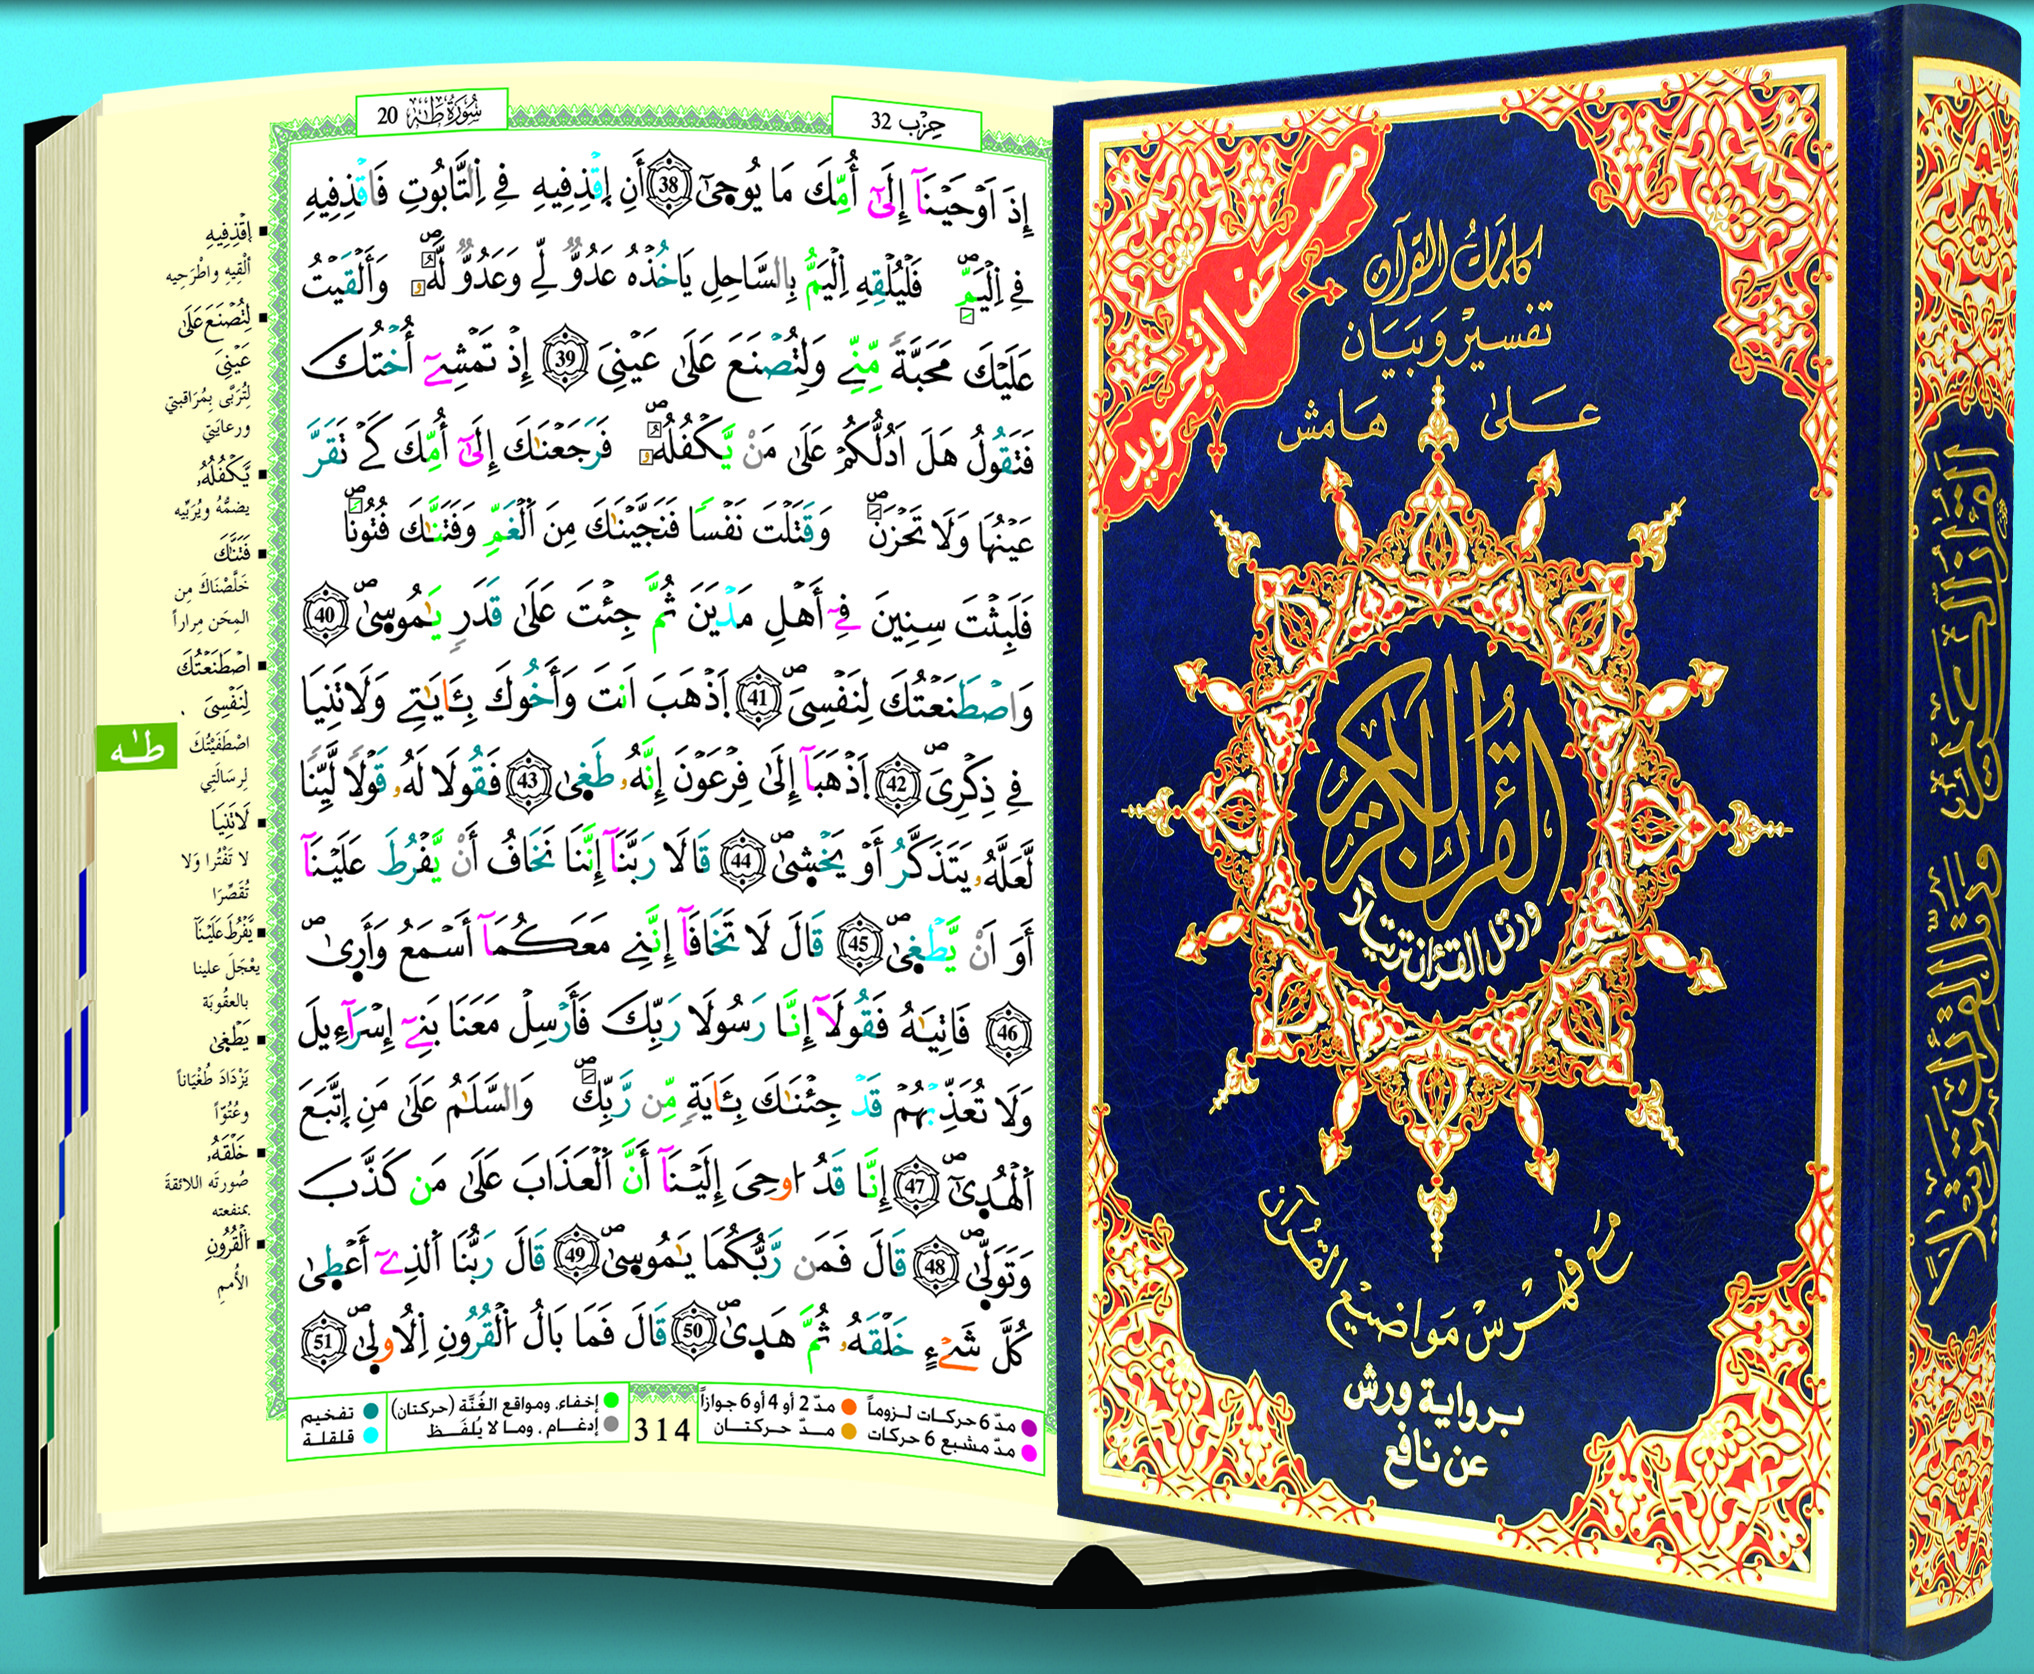 سُورَةُ طَهَ 20
حِزْب 32
إِذَ اَوْحَيْنَآ إِلَىٰٓ أُمِّكَ مَا يُوحَىٰٓ 38 أَنِ اِ۪قْذِفِيهِ فِي اِ۬لتَّابُوتِ فَاقْذِفِيهِ
فِي اِ۬لْيَمِّۖ فَلْيُلْقِهِ اِ۬لْيَمُّ بِالسَّاحِلِ يَاخُذْهُ عَدُوّٞ لِّي وَعَدُوّٞ لَّهُۥۖ وَأَلْقَيْتُ
عَلَيْكَ مَحَبَّةٗ مِّنِّے وَلِتُصْنَعَ عَلَىٰ عَيْنِيَ 39 إِذْ تَمْشِےٓ أُخْتُكَ
فَتَقُولُ هَلَ اَدُلُّكُمْ عَلَىٰ مَنْ يَّكْفُلُهُۥۖ فَرَجَعْنَٰكَ إِلَىٰٓ أُمِّكَ كَےْ تَقَرَّ
عَيْنُهَا وَلَا تَحْزَنَۖ وَقَتَلْتَ نَفْساٗ فَنَجَّيْنَٰكَ مِنَ اَ۬لْغَمِّ وَفَتَنَّٰكَ فُتُوناٗۖ
فَلَبِثْتَ سِنِينَ فِےٓ أَهْلِ مَدْيَنَ ثُمَّ جِئْتَ عَلَىٰ قَدَرٖ يَٰمُوسَىٰۖ 40
وَاصْطَنَعْتُكَ لِنَفْسِيَۖ 41 اَ۪ذْهَبَ اَنتَ وَأَخُوكَ بِـَٔايَٰتِے وَلَا تَنِيَا
فِي ذِكْرِيَۖ 42 اَ۪ذْهَبَآ إِلَىٰ فِرْعَوْنَ إِنَّهُۥ طَغَىٰ 43 فَقُولَا لَهُۥ قَوْلاٗ لَّيِّناٗ
لَّعَلَّهُۥ يَتَذَكَّرُ أَوْ يَخْشَىٰۖ 44 قَالَا رَبَّنَآ إِنَّنَا نَخَافُ أَنْ يَّفْرُطَ عَلَيْنَآ
أَوَ اَنْ يَّطْغَىٰۖ 45 قَالَ لَا تَخَافَآ إِنَّنِے مَعَكُمَآ أَسْمَعُ وَأَرَىٰۖ
46 فَاتِيَٰهُ فَقُولَآ إِنَّا رَسُولَا رَبِّكَ فَأَرْسِلْ مَعَنَا بَنِےٓ إِسْرَآءِيلَ
وَلَا تُعَذِّبْهُمْ قَدْ جِئْنَٰكَ بِـَٔايَةٖ مِّن رَّبِّكَۖ وَالسَّلَٰمُ عَلَىٰ مَنِ اِ۪تَّبَعَ
اَ۬لْهُدَىٰٓۖ 47 إِنَّا قَدُ ا۟وحِيَ إِلَيْنَآ أَنَّ اَ۬لْعَذَابَ عَلَىٰ مَن كَذَّبَ
وَتَوَلَّىٰۖ 48 قَالَ فَمَن رَّبُّكُمَا يَٰمُوسَىٰۖ 49 قَالَ رَبُّنَا اَ۬لذِےٓ أَعْطَىٰ
كُلَّ شَےْءٍ خَلْقَهُۥ ثُمَّ هَدَىٰۖ 50 قَالَ فَمَا بَالُ اُ۬لْقُرُونِ اِ۬لُاولَىٰۖ 51
إقْذِفِيهِ
ألْقِيهِ واطْرَحِيه
لِتُصْنَعَ عَلَىٰ
عَيْنِيَ
لِتُرَبَّى بِمُرَاقبتي
ورعايَتي
يَّكْفُلُهُۥ
يضمُّهُ ويُرَبِّيه
فَتَنَّٰكَ
خَلَّصْنَاكَ مِن
المِحَن مِراراً
اصْطَنَعْتُكَ
لِنَفْسِيَ
اصْطَفَيْتُكَ
لِرِسَالَتِي
لَا تَنِيَا
لا تَفْتُرا وَلا
تُقَصِّرَا
يَّفْرُطَ عَلَيْنَآ
يعْجَلَ علينا
بالعقُوبَة
يَطْغَىٰ
يَزْدَادَ طُغْيَاناً
وعُتُوّاً
خَلْقَهُۥ
صُورتَه اللائقةَ
بمنفعته
اَلْقُرُونِ
الأُممِ
طـٰه
مدّ 6 حركات لـزوماً
مدّ 2 أو 4 أو 6 جوازاً
مدّ مشبع 6 حركات
مـدّ حـركتـان
314
إخفاء، ومواقع الغُنَّة (حركتان)
إدغام ، وما لا يُلفَـظ
تفخيم
قلقلـة
مصحف التجويد
كلمَاتُ القرآن
تفسير وَبَيَان
عَـلىٰ هَامش
القرآن الكريم
ورتل القرءان ترتيلاً
مَع فهرسْ مَواضيع القُرآن
بـرواية ورش
عن نافع
القرآن الكريم ورتل القرءان ترتيلاً